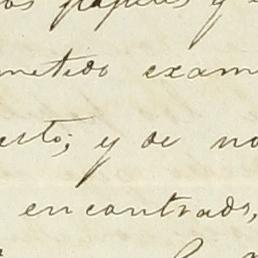 os papeles y
metido exam
esto; y de no
encontrado,